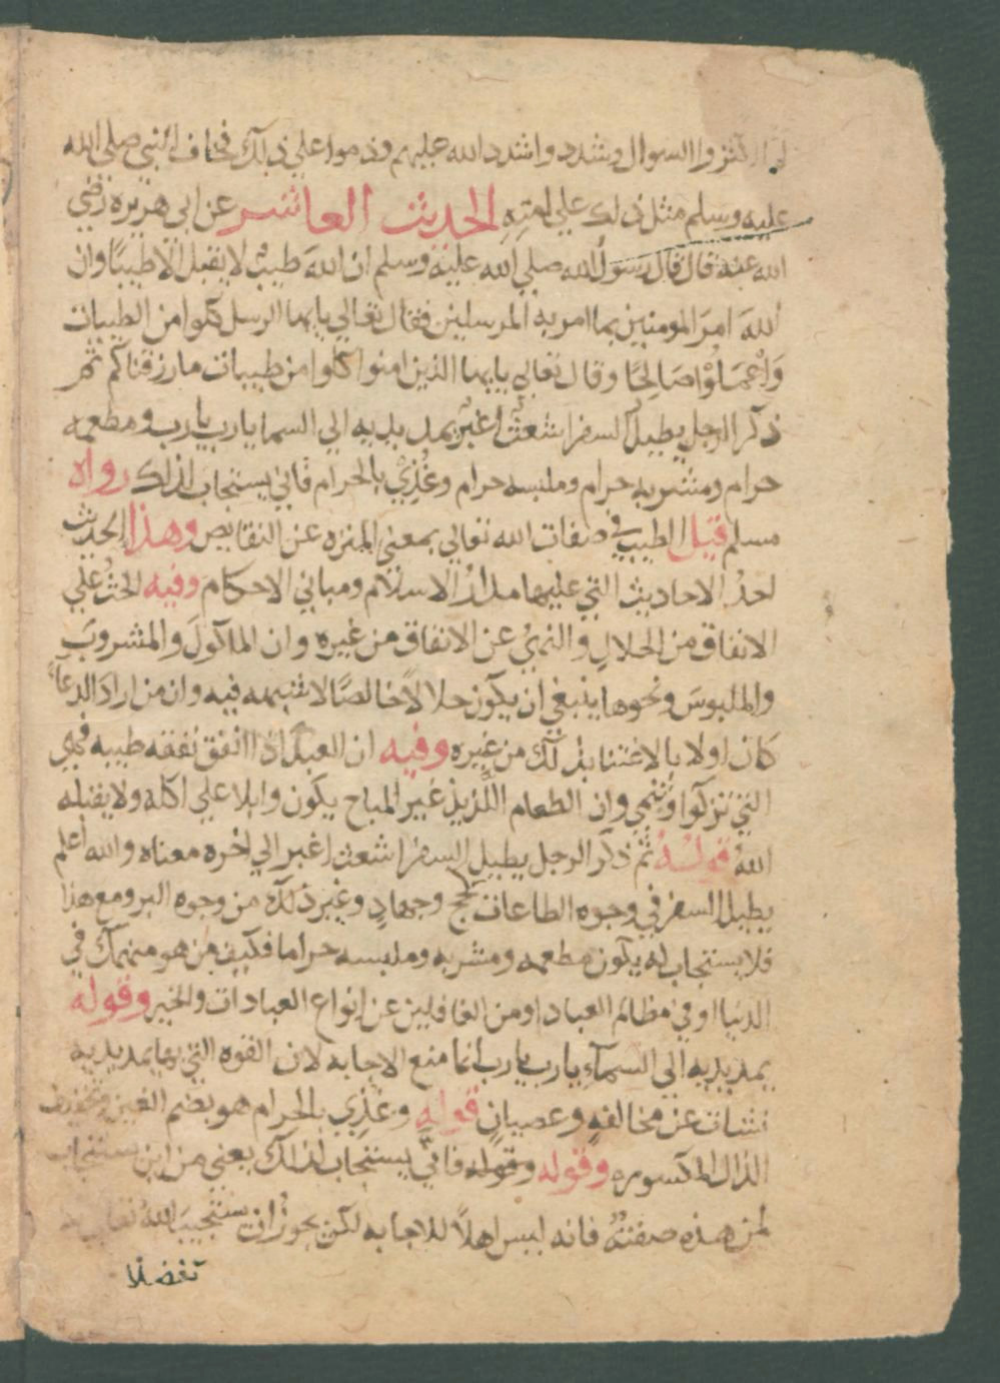 اكثروا السوال وشددوا شدد الله عليهم وذموا علي ذلك فخاف النبي صلي الله
عليه وسلم مثل ذلك علي امته الحديث العاشر عن ابي هريرة رضي
الله عنه قال قال رسول الله صلي الله عليه وسلم ان الله طيبٌ لا يقبل الا طيبًا وان
اللهَ امرَ المومنين بما امر به المرسلين فقال تعالي يايها الرسل كلوا من الطيبات
وَاعْمَلُوْا صَالِحًا وقال تعالي يايها الذين امنوا كلوا من طيبات ما رزقناكم ثم
ذكر الرجل يطيل السفر اشعثَ اغبرَ يمد يديه الي السما يارب يارب ومطعمه
حرام ومشربه حرام وملبسه حرام وغُذِيْ بالحرام فاني يستجاب لذلك رواه
مسلم قيل الطيب في صفات الله تعالي بمعني المنزه عن النقايص وهذا الحديث
احدُ الاحاديث التي عليها مدارُ الاسلام ومباني الاحكام وفيه الحثُ علي
الانفاق من الحلال والنهيُ عن الانفاق من غيره وان الماكولَ والمشروبَ
والملبوسَ ونحوها ينبغي ان يكون حلالاً خالصًا لا شبهه فيه وان من ارادَ الدعآءَ
كان اولا بالاعتنا بذلك من غيره وفيه ان العبد اذا انفق نفقه طيبه فهي
التي تزكوا وتنمي وان الطعام اللذيذ غير المباح يكون وابلا علي اكله ولا يقبله
اللهُ قوله ثم ذكر الرجل يطيل السفر اشعث اغبر الي اخره معناه والله اعلم
يطيل السفر في وجوه الطاعات كحج وجهادٍ وغير ذلك من وجوه البر ومع هذا
فلا يستجاب له يكون مطعمه ومشربه وملبسه حراما فكيف بمن هو منهمك في
الدنيا او في مظالم العباد او من الغافلين عن انواع العبادات والخير وقوله
يمد يديه الي السمآء يارب يارب انما منع الاجابه لان القوه التي بها يمد يديه
نشات عن مخالفهٍ وعصيانٍ قوله وغُذِي بالحرام هو بضم الغين وتخفيف
الذال المكسوره وقوله وقوله فانيّ يستجاب لذلك يعني من اين يستجاب
لمن هذه صفتهُ فانه ليس اهلاً للاجابه لكن يجوز ان يستجيبَ اللهُ تعالي له
تفضلا